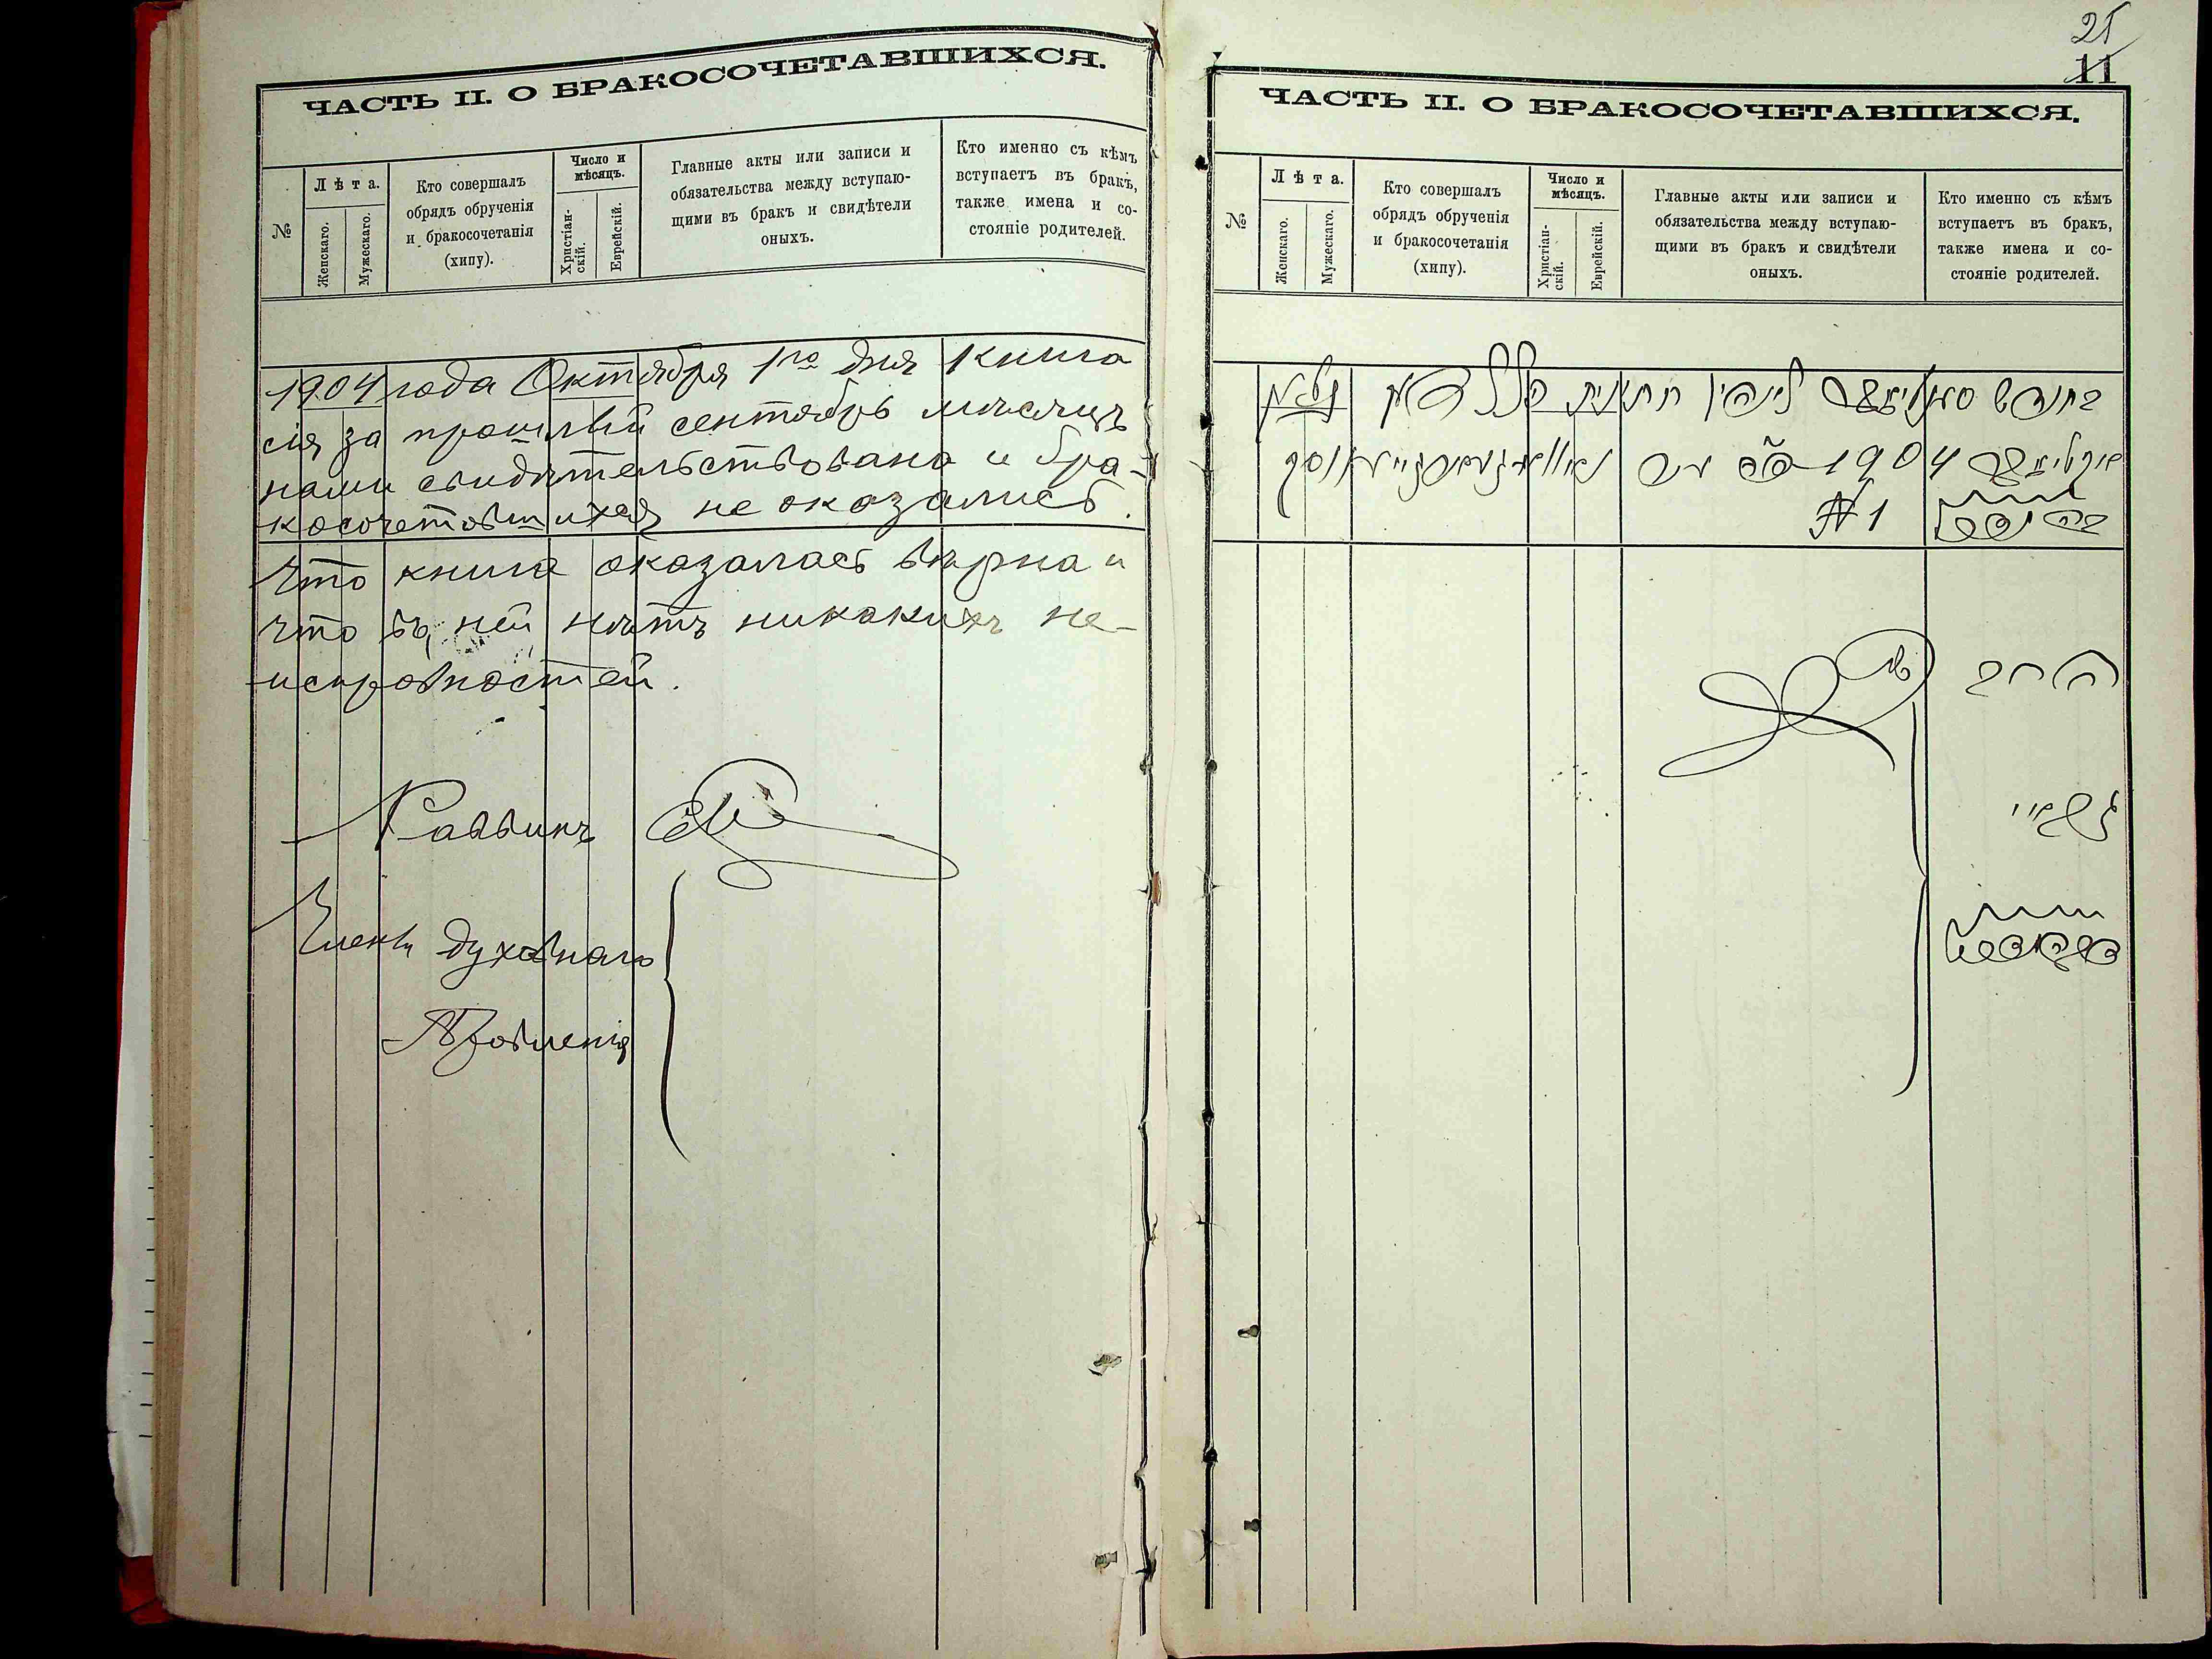 ЧАСТЬ II. О БРАКОСОЧЕТАВШИХСЯ.
№
Лѣта.
Женскаго.
Мужескаго.
Кто совершалъ
обрядъ обрученія
и бракосочетанія
(хипу).
Число и
мѣсяцъ.
Христіан-
скій.
Еврейскій.
Главные акты или записи и
обязательства между вступаю-
щими въ бракъ и свидѣтели
оныхъ.
Кто именно съ кѣмъ
вступаетъ въ бракъ,
также имена и со-
стояніе родителей.
1904 года Октября 1го дня Книга
сія за прошлый сентябрь мѣсяцъ
нами свидѣтельствована и бра-
косочетавшихся не оказались.
Что книга оказалась вѣрна и
что въ ней нѣтъ никакихъ не-
исправностей.
Раввинъ
Члены духовнаго
Правленія
21
11
ЧАСТЬ II. О БРАКОСОЧЕТАВШИХСЯ.
№
Лѣта.
Женскаго.
Мужескаго.
Кто совершалъ
обрядъ обрученія
и бракосочетанія
(хипу).
Число и
мѣсяцъ.
Христіан-
скій.
Еврейскій.
Главные акты или записи и
обязательства между вступаю-
щими въ бракъ и свидѣтели
оныхъ.
Кто именно съ кѣмъ
вступаетъ въ бракъ,
также имена и со-
стояніе родителей.
1904
№ 1
הרב